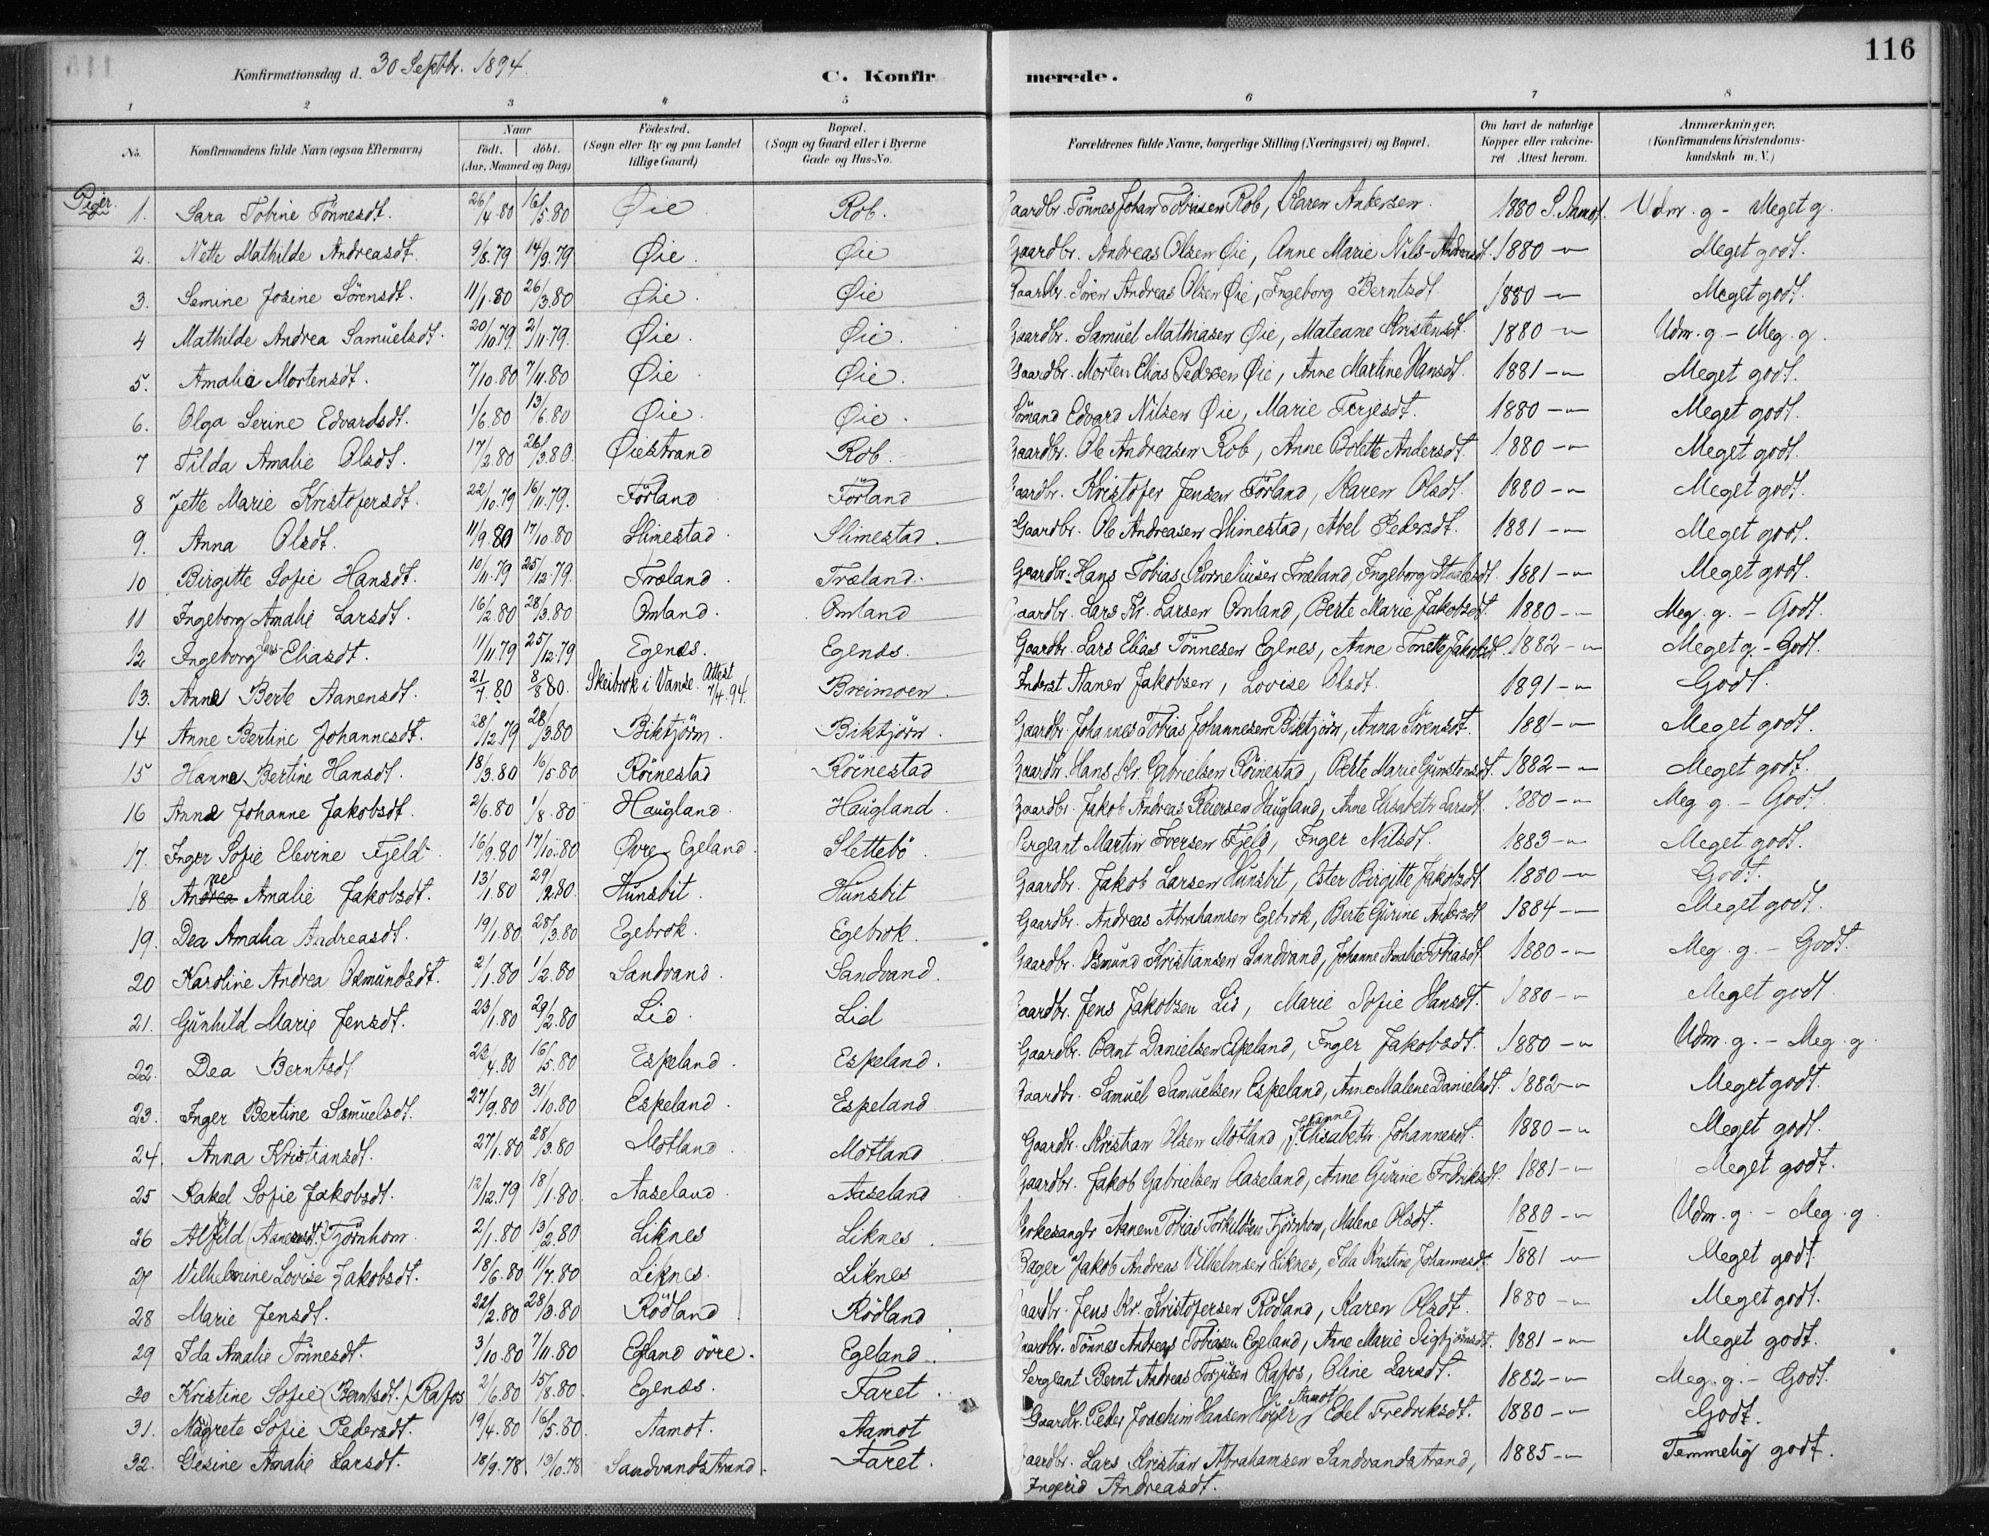 116
Konfirmationsdag d. 30 Septbr. 1894.
C. Konfirmerede.
1 2 3 4 5 6 7 8
No. | Konfirmandens fulde Navn (ogsaa Efternavn) | Naar født. døbt. (Aar, Maaned og Dag) | Fødested. (Sogn eller By og paa Landet tillige Gaard) | Bopæl. (Sogn og Gaard eller i Byerne Gade og Hus-No. | Forældrenes fulde Navne, borgerlige Stilling (Næringsvei) og Bopæl. | Om havt de naturlige Kopper eller vakcineret Attest herom. | Anmærkninger. (Konfirmandens Kristendomskundskab m. V.)
Piger.
1. Sara Tobine Tönnesdt. 26/4.80 16/5.80 Øie. Rob. Gaardbr. Tönnes Johan Tobiasen Rob, Karen Ankersen. 1880 Udm. g - Meget g.
2. Nette Mathilde Andreasdt. 9/8.79 14/9.79 Øie. Øie Gaardbr. Andreas Olsen Øie, Anne Marie Nils-Andersdt. 1880 -"- Meget godt.
3. Semine Josine Sörensdt. 11/1.80 26/3.80 Øie. Øie Gaardbr. Sören Andreas Olsen Øie, Ingeborg Berntsdt. 1880 -"- Meget godt.
4 Mathilde Andrea Samuelsdt. 20/10.79 2/11.79. Øie. Øie. Gaardbr. Samuel Mathiasen Øie, Mateane Kristensdt. 1880 -"- Udm. g - Meg. g.
5. Amalie Mortensdt. 7/10.80 7/11.80 Øie. Øie. Gaardbr. Morten Elias Pedersen Øie, Anne Martine Hansdt. 1881 -"- Meget godt.
6. Olga Serine Edvardsdt. 1/6.80 13/6.80 Øie. Øie. Sömand Edvard Nilsen Øie, Marie Terjesdt. 1880 -"- Meget godt.
7 Tilda Amalie Olsdt. 17/2.80 26/3.80. Øiestrand Rob. Gaardbr. Ole Andreasen Rob, Anne Bolette Andersdt. 1880 -"- Meget godt.
8 Jette Marie Kristofersdt. 22/10.79 16/11.79. Förland. Förland Gaardbr. Kristofer Jensen Förland, Karen Olsdt. 1880 -"- Meget godt.
9. Anna Olsdt. 11/9.80 17/10.80 Slimestad. Slimestad. Gaardbr. Ole Andreasen Slimestad, Abel Pedersdt. 1881 -"- Meget godt.
10 Birgitte Sofie Hansdt. 10/11.79 25/12.79. Træland. Træland. Gaardbr. Hans Tobias Korneliusen Træland, Ingeborg 1881 -"- Meget godt.
11 Ingeborg Amalie Larsdt. 16/2.80 28/3.80 Omland. Omland Gaardbr. Lars Kr. Larsen Omland, Berte Marie Jakobsdt. 1880 -"- Meg. g. - Godt.
12 Ingeborg Lars-Eliasdt. 11/11.79 25/12.79 Egenæs. Egenæs. Gaardbr. Lars Elias Tönnesen Egenes, Anne Tonette Jakobsdt. 1882 -"- Meget g. - Godt.
13. Anna Berte Aanensdt. 21/7.80 8/8.80. Skeibrok i Vanse. Attest 7/4.94. Breimoen. Inderst Aanen Jakobsen, Lovise Olsdt. 1891 -"- Godt.
14 Anne Bertine Johannesdt. 28/12.79 28/3.80 Biktjörn. Biktjörn. Gaardbr. Johannes Tobias Johannesen Biktjörn, Anna Sörensdt. 1881 -"- Meget godt.
15 Hanna Bertine Hansdt. 18/3.80 16/5.80 Röinestad Röinestad Gaardbr. Hans Kr. Gabrielsen Röinestad, Berte Marie Gumstensdt. 1882 -"- Meget godt.
16 Anna Johanne Jakobsdt. 2/6.80 1/8.80. Haugland. Haugland. Gaardbr. Jakob Andreas Reiersen Haugland, Anne Elisabeth Larsdt. 1880 -"- Meg g. - Godt
17. Inger Sofie Elevine Fjeld 16/9.80 17/10.80 Øvre Egeland. Slettebö. Sergeant Martin Iversen Fjeld, Inger Nilsdt. 1883 -"- Meget godt.
18 Andrea ne Amalie Jakobsdt. 13/1.80 29/2.80. Hunsbit. Hunsbit Gaardbr. Jakob Larsen Hunsbit, Ester Birgitte Jakobsdt. 1880 -"- Godt.
19. Dea Amalia Andreasdt. 19/1.80 28/3.80 Egebrok. Egebrok. Gaardbr. Andreas Abrahamsen Egebrok, Berte Gurine Andersdt. 1884 -"- Meget godt.
20 Karoline Andrea Osmundsdt. 2/1.80 1/2.80 Sandvand. Sandvand. Gaardbr. Osmund Kristiansen Sandvand, Johanne Amalie Tobiasdt. 1880 -"- Meg. g. - Godt.
21. Gunhild Marie Jensdt. 23/1.80 29/2.80 Lid. Lid Gaardbr. Jens Jakobsen Lid, Marie Sofie Hansdt. 1880 -"- Meget godt
22. Dea Berntsdt 23/4.80 16/5.80 Espeland. Espeland. Gaardbr. Bernt Danielsen Espeland, Inger Jakobsdt. 1880 -"- Udm. g. - Meg. g.
23. Inger Bertine Samuelsdt. 27/9.80 31/10.80 Espeland. Espeland Gaardbr. Samuel Samuelsen Espeland, Anne Malene Danielsdt. 1882 -"- Meget godt.
24. Anna Kristiansdt. 27/1.80 28/3.80 Motland. Motland Gaardbr. Kristian Olsen Motland, Johanne Elisabeth Johannesdt. 1880 -"- Meget godt.
25 Rakel Sofie Jakobsdt. 12/12.79 18/1.80. Aaseland. Aaseland Gaardbr. Jakob Gabrielsen Aaseland, Anne Gurine Fredriksdt. 1881 -"- Meget godt.
26 Alfild (Aanensdt.) Tjörnhom 2/1.80 13/2.80 Liknes Liknes. Kirkesanger Aanen Tobias Torkildsen Tjörnhom, Malene Olsdt. 1880 -"- Udm. g. - Meg. g.
27 Vilhelmine Lovise Jakobsdt. 18/6.80 11/7.80 Liknes. Liknes Bager Jakob Andreas Vilhelmsen Liknes, Ida Kristine Johannesdt. 1881 -"- Meget godt
28 Marie Jensdt. 22/2.80 28/3.80 Rödland Rödland Gaardbr. Jens Kr. Kristofersen Rödland, Karen Olsdt. 1880 -"- Meget godt.
29 Ida Amalie Tönnesdt. 3/10.80 7/11.80 Egland övre. Egeland. Gaardbr. Tönnes Andreas Tobiasen Egeland, Ane Marie Sigbjörnsdt. 1881 -"- Meget godt.
30 Kristine Sofie (Berntsdt.) Rafos 2/6.80 15/8.80. Egenæs. Faret. Sergeant Bernt Andreas Torjusen Rafos, Oline Larsdt. 1882 -"- Meg. g. - Godt.
31. Magrete Sofie Pedersdt. 19/4.80 16/5.80. Aamot. Aamot Gaardbr. Peder Joachim Hansen Höyer, Aamot Edel Fredriksdt. 1880 -"- Godt.
32. Gesine Amalie Larsdt. 18/9.78. 13/10.78 Sandvandstrand. Faret. Gaardbr. Lars Kristian Abrahamsen Sandvandstrand, 1885 -"- Temmelig godt.
Ingerid Andreasdt.